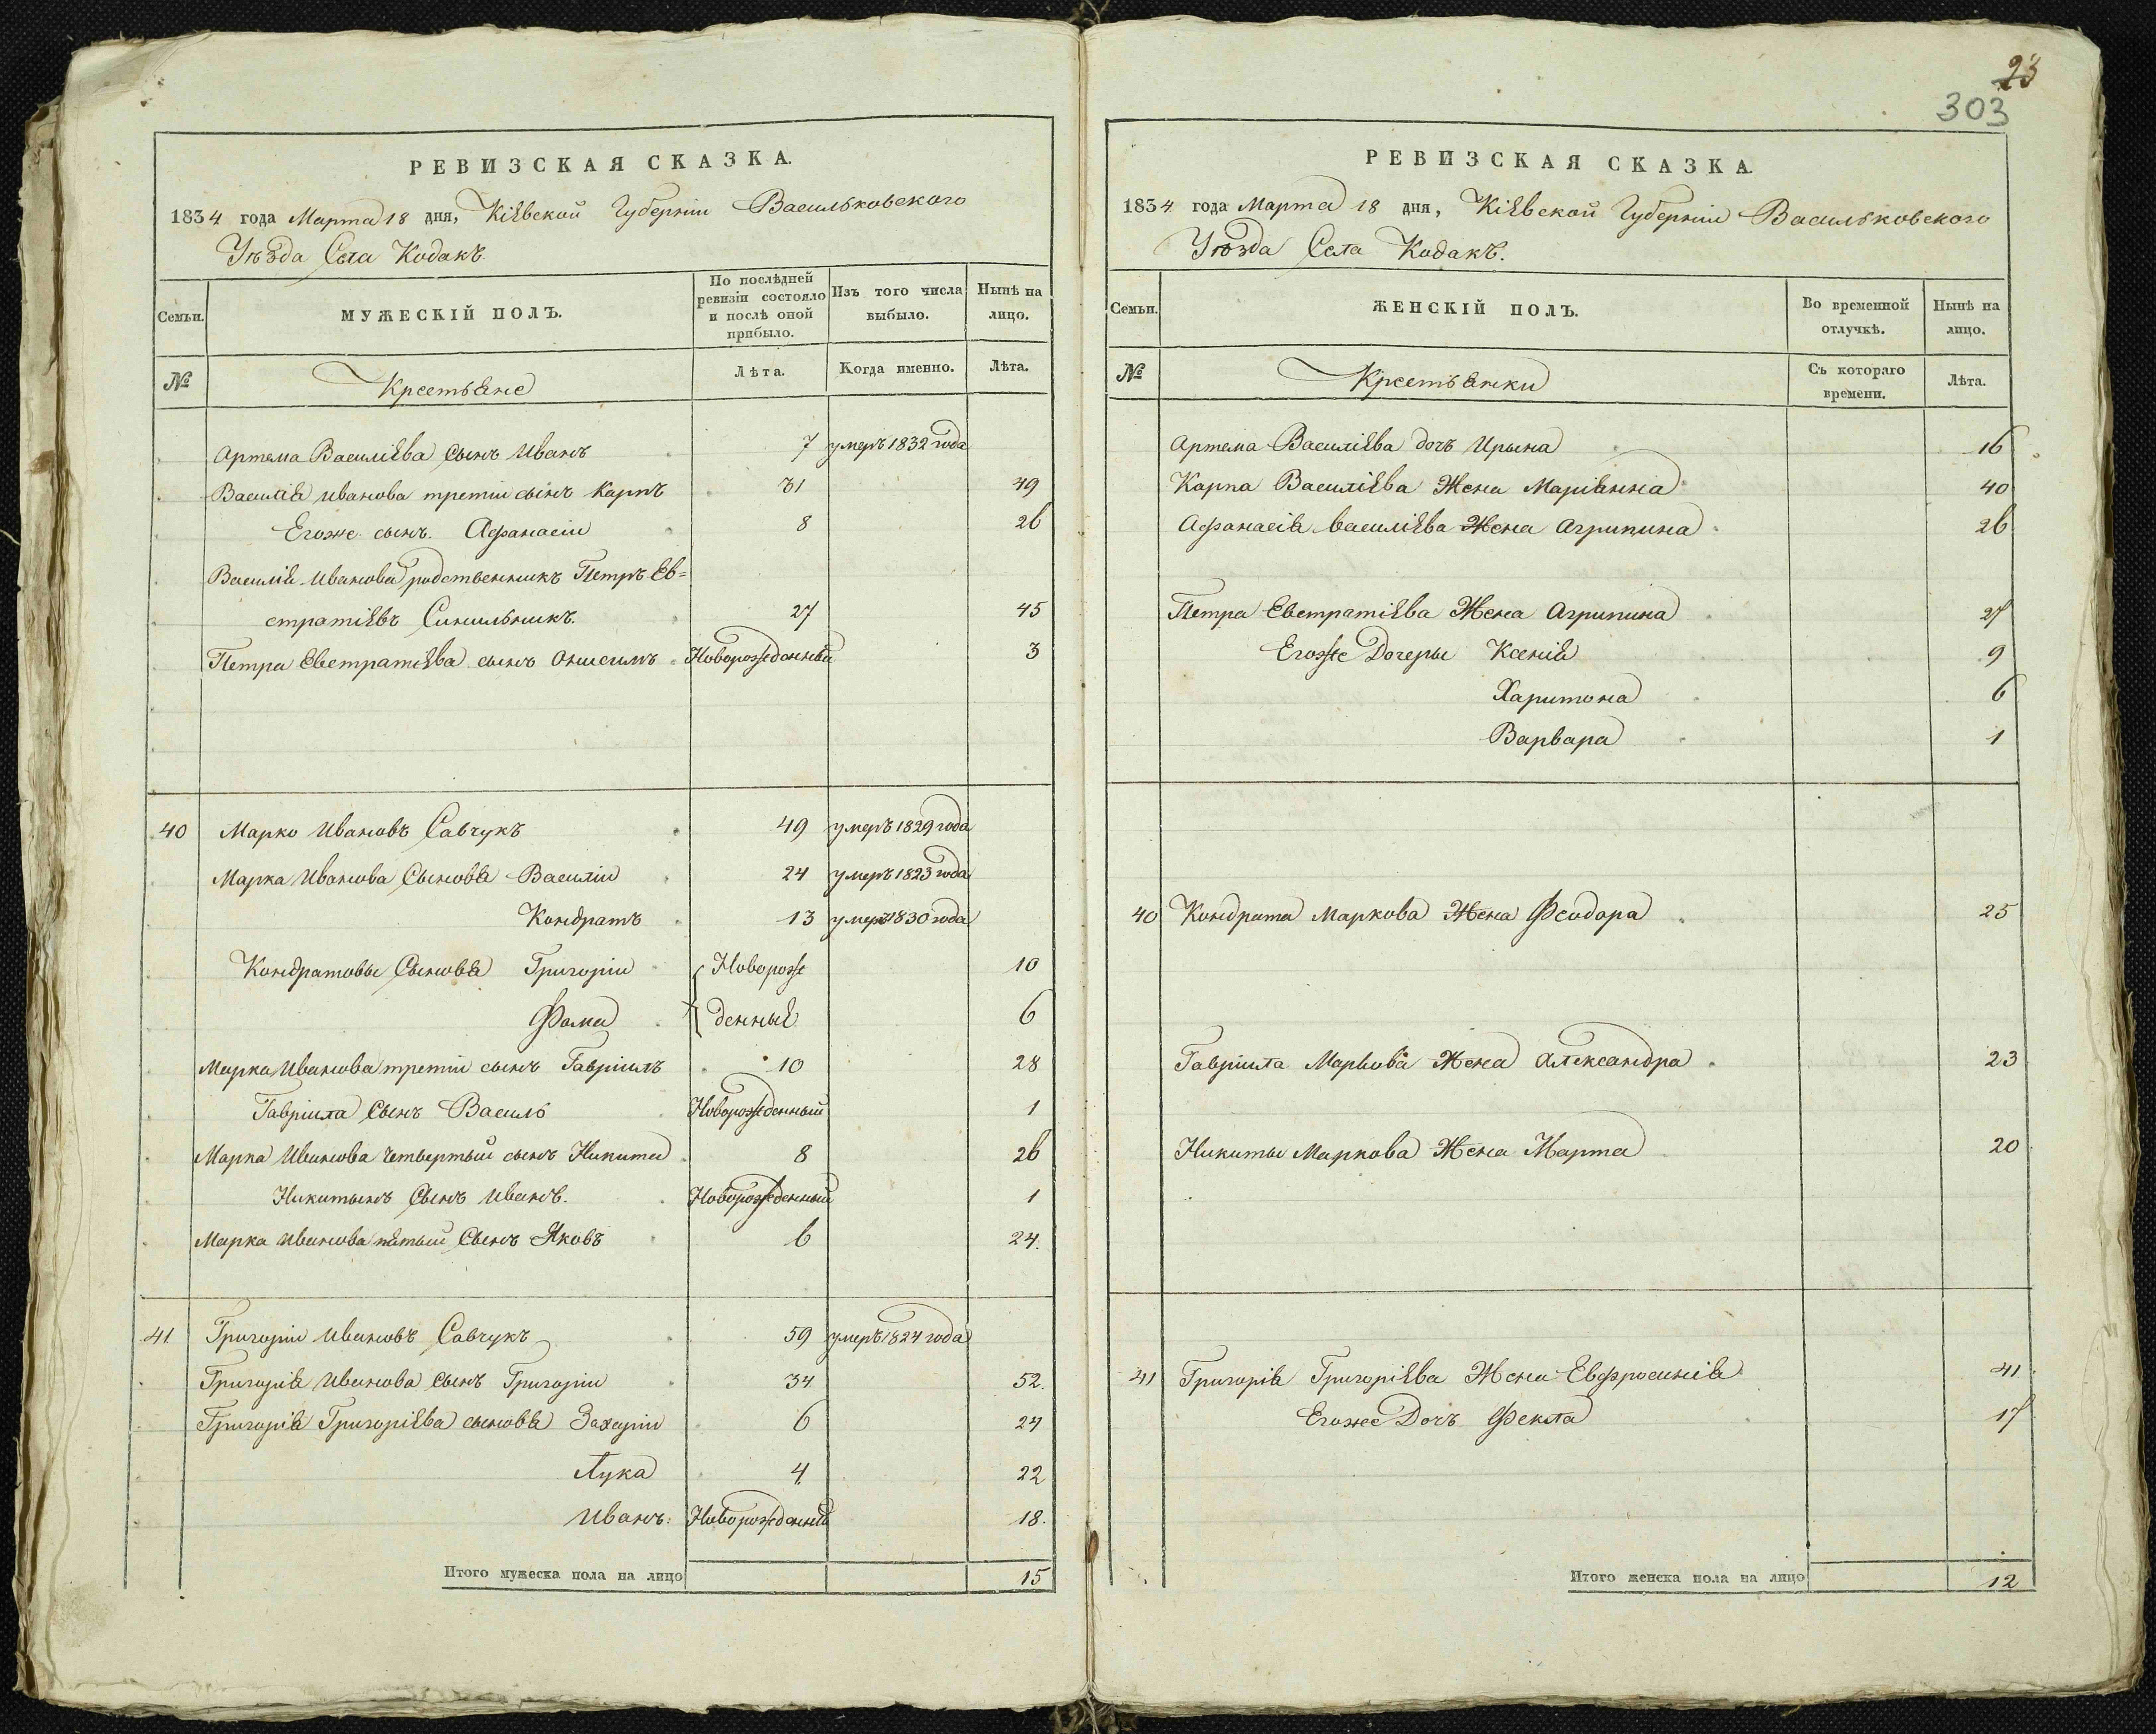 23
303
РЕВИЗСКАЯ СКАЗКА.
1834 года Марта 18 дня, Кіевской Губерніи Васильковского
Уѣзда Села Кодакъ.
Семьи.
МУЖЕСКІЙ ПОЛЪ.
По послѣдней ревизіи состояло и послѣ оной прибыло.
Изъ того числа выбыло.
Нынѣ на лицо.
№
Крестьяне
Лѣта.
Когда именно.
Лѣта.
Артема Василіева сынъ Иванъ 7 умеръ 1832 года
Василія Иванова третіи сынъ Карпъ 31 49
Егоже сынъ Афанасіи 8 26
Василія Иванова родственникъ Петръ Ев=
стратіевъ Синильникъ 27 45
Петра Евстратіева сынъ Онисимъ Новорожденный 3
40 Марко Ивановъ Савчукъ 49 умеръ 1829 года
Марка Иванова Сыновья Василіи 24 умеръ 1823 года
Кондратъ 13 умеръ 1830 года
Кондратовы Сыновья Григоріи Новорож 10
Фома денные 6
Марка Иванова третіи сынъ Гавріилъ 10 28
Гавріила Сынъ Василь Новорожденный 1
Марка Иванова четвертый сынъ Никита 8 26
Никитынъ Сынъ Иванъ. Новорожденный 1
Марка Иванова пятый Сынъ Яковъ 6 24.
41 Григоріи Ивановъ Савчукъ 59 умеръ 1824 года
Григорія Иванова сынъ Григоріи 34 52.
Григорія Григоріева сыновья Захаріи 6 24
Лука 4 22
Иванъ: Новорожденный 18.
Итого мужеска пола на лицо 15
РЕВИЗСКАЯ СКАЗКА.
1834 года Марта 18 дня, Кіевской Губерніи Васильковского
Уѣзда Села Кодакъ.
Семьи.
ЖЕНСКІЙ ПОЛЪ.
Во временной отлучкѣ.
Нынѣ на лицо.
№
Крестьянки
Съ котораго времени.
Лѣта.
Артема Василіева дочъ Ирына 16
Карпа Василіева Жена Маріянна 40
Афанасія Василіева Жена Агрипина 26
Петра Евстратіева Жена Агрипина 27
Егоже Дочеры Ксенія 9
Харитона 6
Варвара 1
40 Кондрата Маркова Жена Феодора 25
Гавріила Маркова Жена Александра 23
Никиты Маркова Жена Марта 20
41 Григорія Григоріева Жена Евфросинія 41
Егоже Дочъ Фекла 17
Итого женска пола на лицо 12